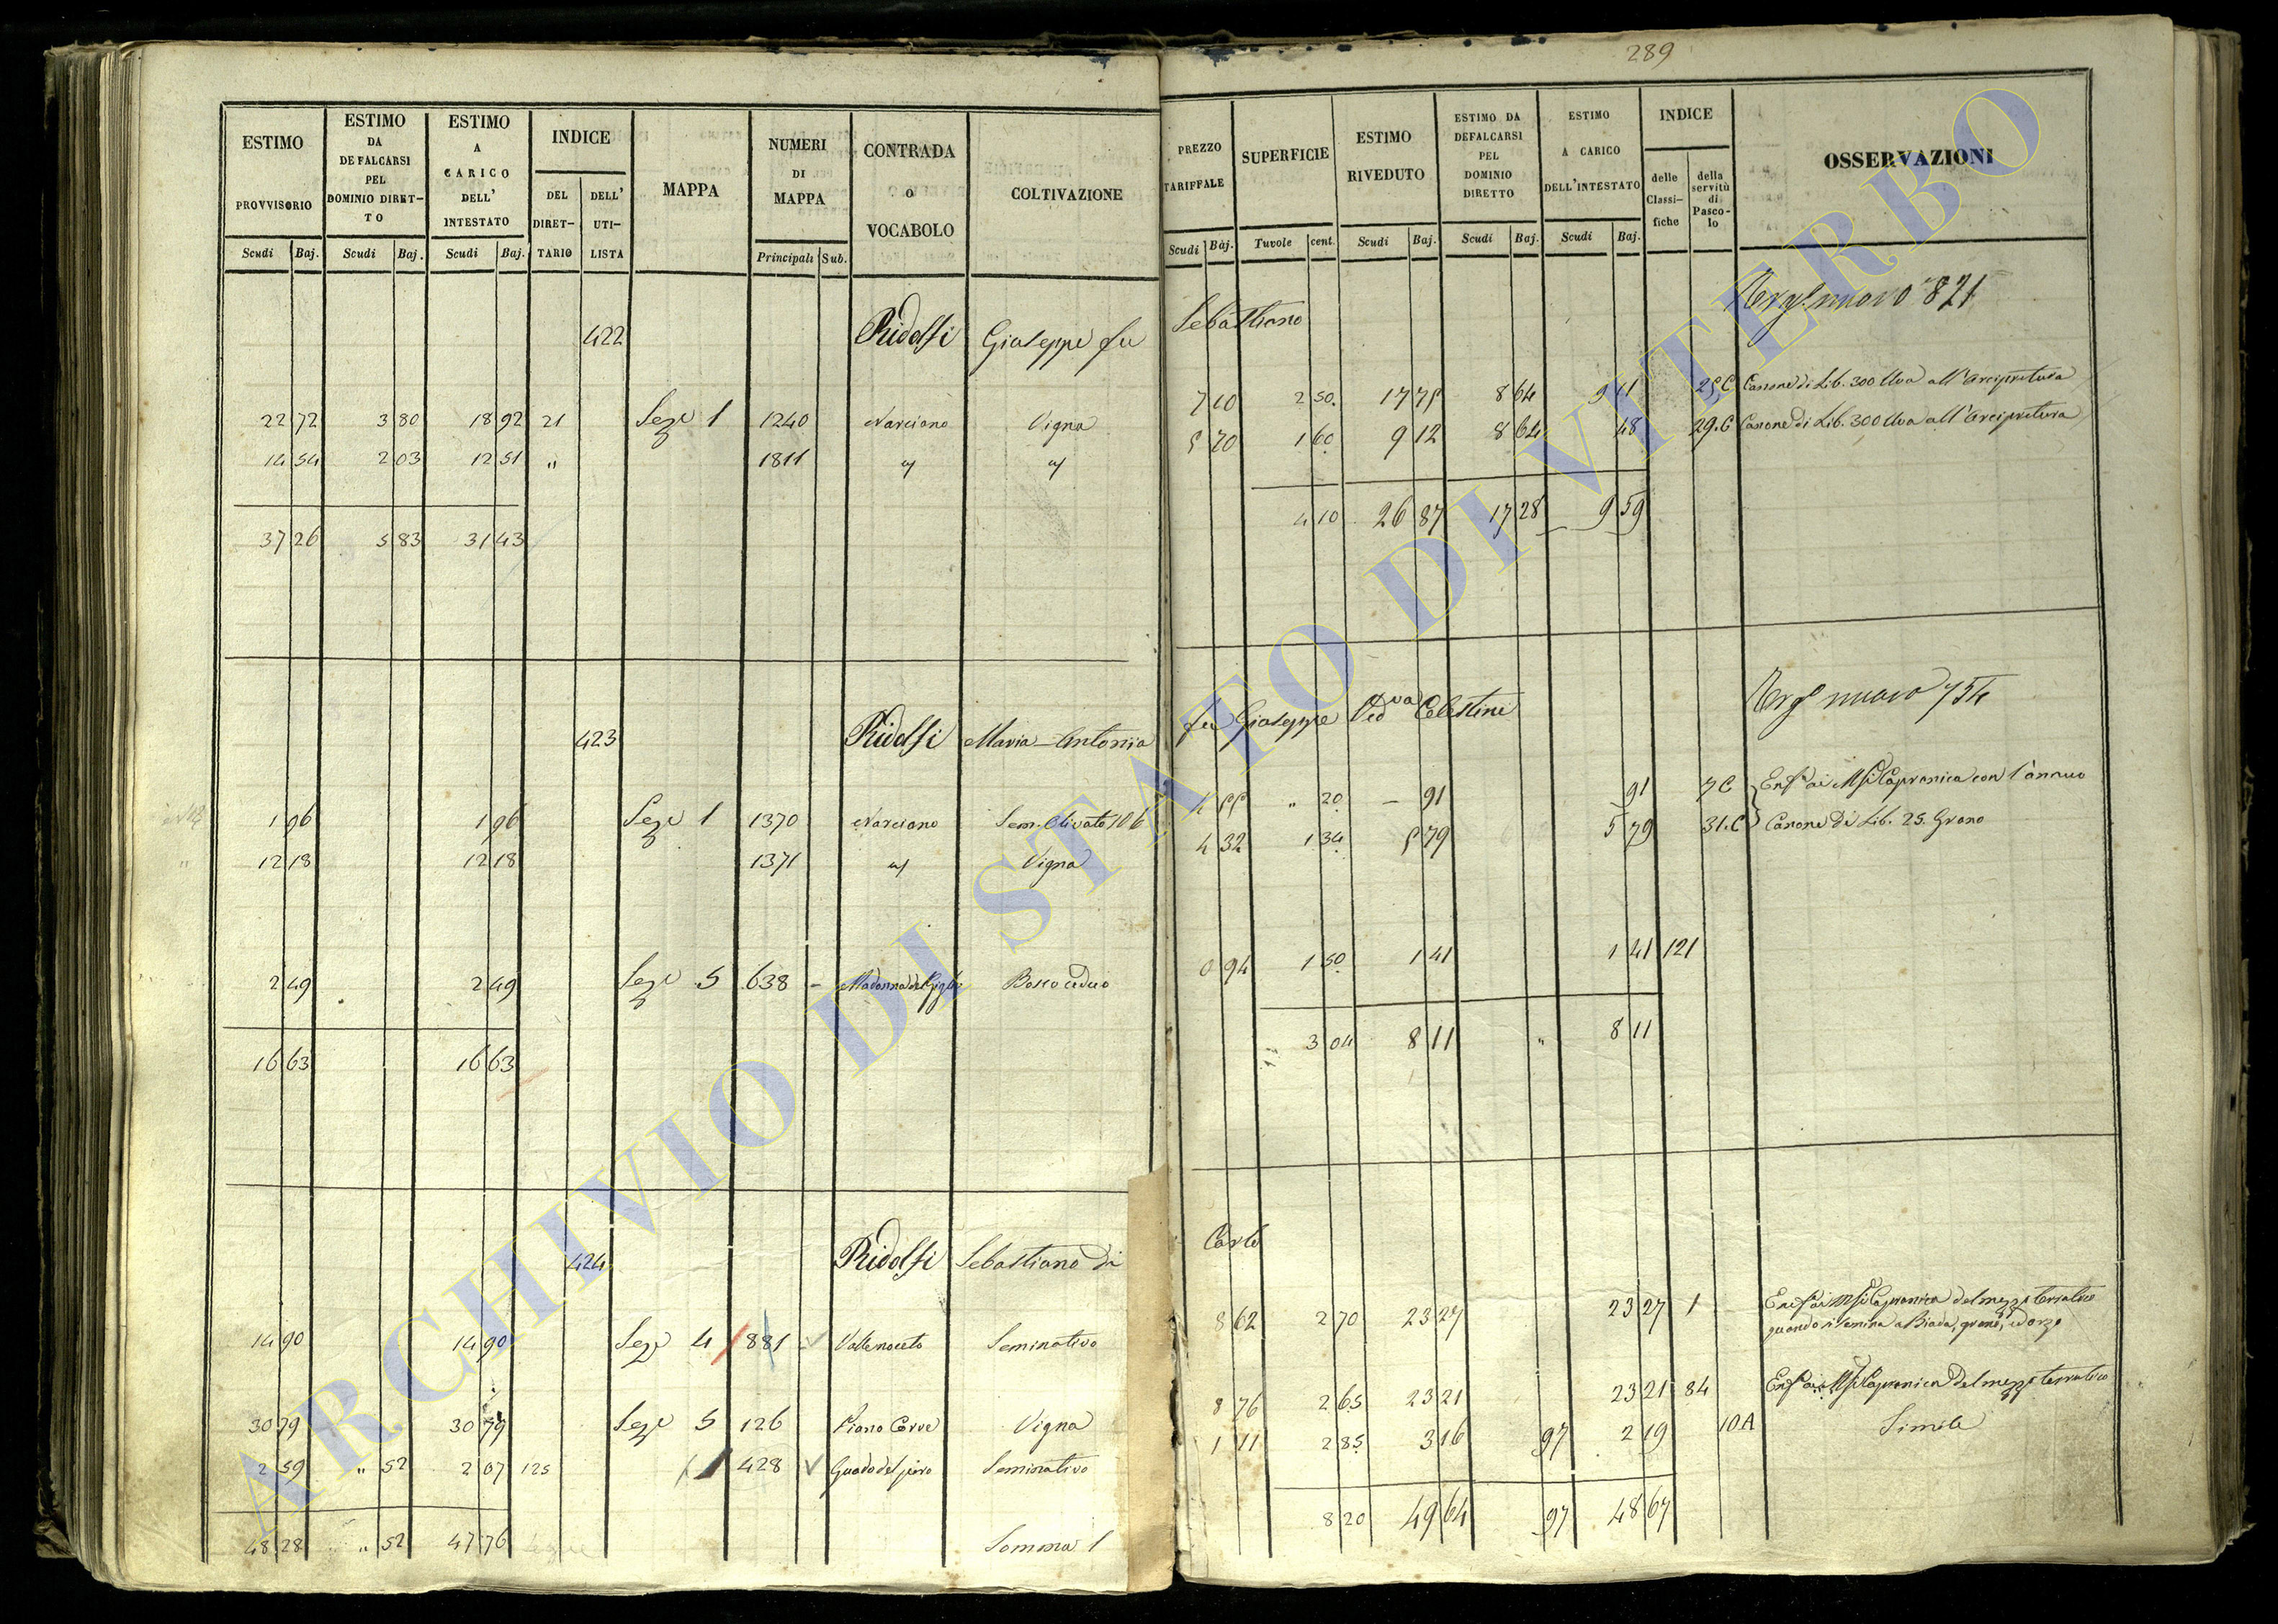 289
ESTIMO PROVVISORIO Scudi Baj.
ESTIMO DA DEFALCARSI PEL DOMINIO DIRETTO Scudi Baj.
ESTIMO A CARICO DELL' INTESTATO Scudi Baj.
INDICE DEL DIRETTARIO DELL' UTILISTA
MAPPA
NUMERI DI MAPPA Principali Sub.
CONTRADA O VOCABOLO
COLTIVAZIONE
PREZZO TARIFFALE Scudi Baj.
SUPERFICIE Tuvole cent.
ESTIMO RIVEDUTO Scudi Baj.
ESTIMO DA DEFALCARSI PEL DOMINIO DIRETTO Scudi Baj.
ESTIMO A CARICO DELL'INTESTATO Scudi Baj.
INDICE delle Classifiche della servitù di Pascolo
OSSERVAZIONI
nuovo 821
422 Ridolfi Giuseppe fu Sebastiano
22 72 3 80 18 92 21 Seze 1 1240 Narciano Vigna 7 10 2 50. 17 75 8 64 9 11 29.C Canone di Lib. 300 Uva all'Arcipretura
14 54 2 03 12 51 " 1811 5 70 1 60 9 12 8 64 48 29.C Canone di Lib. 300 Uva all'Arcipretura
37 26 5 83 31 43 4 10 26 87 17 28 9 59
nuovo 754
423 Ridolfi Maria Antonia fu Giuseppe Ved va Celestini
1 96 1 96 Seze 1 1370 Narciano Sem. Olivato 106 4 55 " 20 – 91 91 7 C Enf ai Capranica con l'annuo
12 18 12 18 1371 Vigna 4 32 1 34 5 79 5 79 31.C Canone di Lib. 25. Grano
2 49 2 49 Seze 5 638 – Madonna del Giglio Bosco ceduo 0 94 1 50 1 41 1 41 121
16 63 16 63 3 04 8 11 " 8 11
424 Ridolfi Sebastiano di Carlo
14 90 14 90 Seze 4 881 Valle noceto Seminativo 8 62 2 70 23 27 23 27 1 Enf ai Capranica del mezzo terratico
quando si semina a Biada, grano, ed orzo
30 79 30 79 Seze 5 126 Piano Cerve Vigna 8 76 2 65 23 21 23 21 84 Enf ai Capranica del mezzo terratico
2 59 " 52 2 07 125 428 Guado del Seminativo 1 11 2 85 3 16 97 2 19 10 A Simile
48 28 " 52 47 76 Somma 1 8 20 49 64 97 48 67
ARCHIVIO DI STATO DI VITERBO